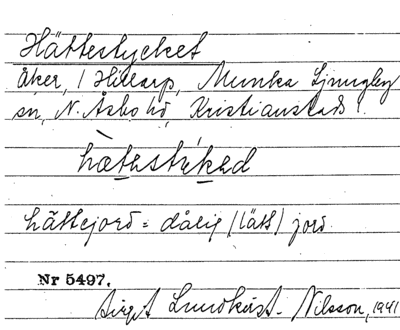 Hättestycket
Åker, i Hillarp, Munka Ljungby
sn, N. Åsbo hd, Kristianstads l.
hätestyked
hättejord = dålig (lätt) jord
Nr 5497.
Birgit Lundkvist-Nilsson, 1941